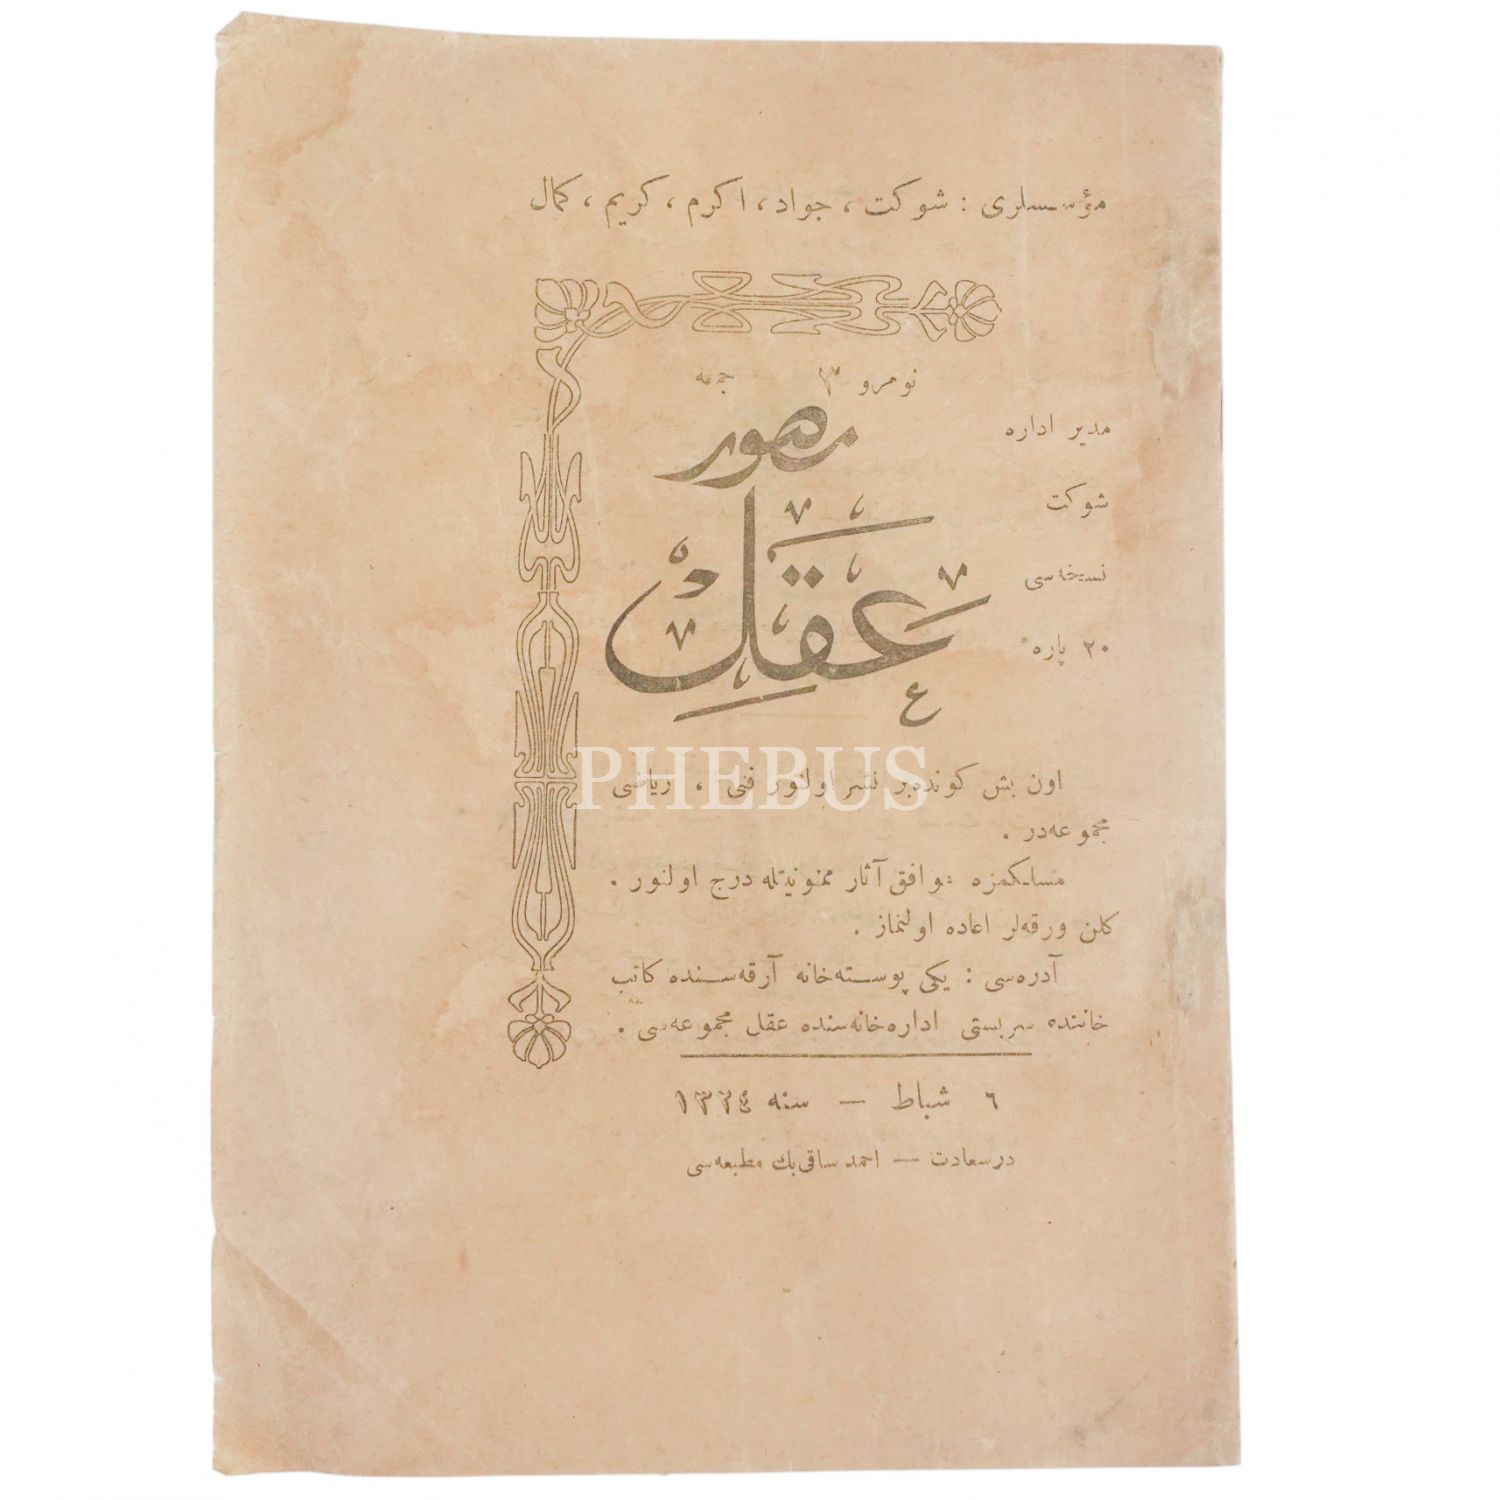 مؤسسلری : شوكت ، جواد ، اكرم ، كریم ، كمال
نومرو ٣ جمعه
مصور
عقل
مدیر اداره
شوكت
نسخه‌سی
٢٠ پاره
PHEBUS
اون بش كونده‌بر نشر اولنور فنی ، ریاضی
مجموعه‌در .
مسلكمزه موافق آثار ممنونیتله درج اولنور .
كلن ورقه‌لر اعاده اولنماز .
آدره‌سی : یكی پوسته‌خانه آرقه‌سنده كاتب
خاننده سربستی اداره‌خانه‌سنده عقل مجموعه‌سی .
٦ شباط — سنه ١٣٢٤
درسعادت — احمد ساقی بك مطبعه‌سی